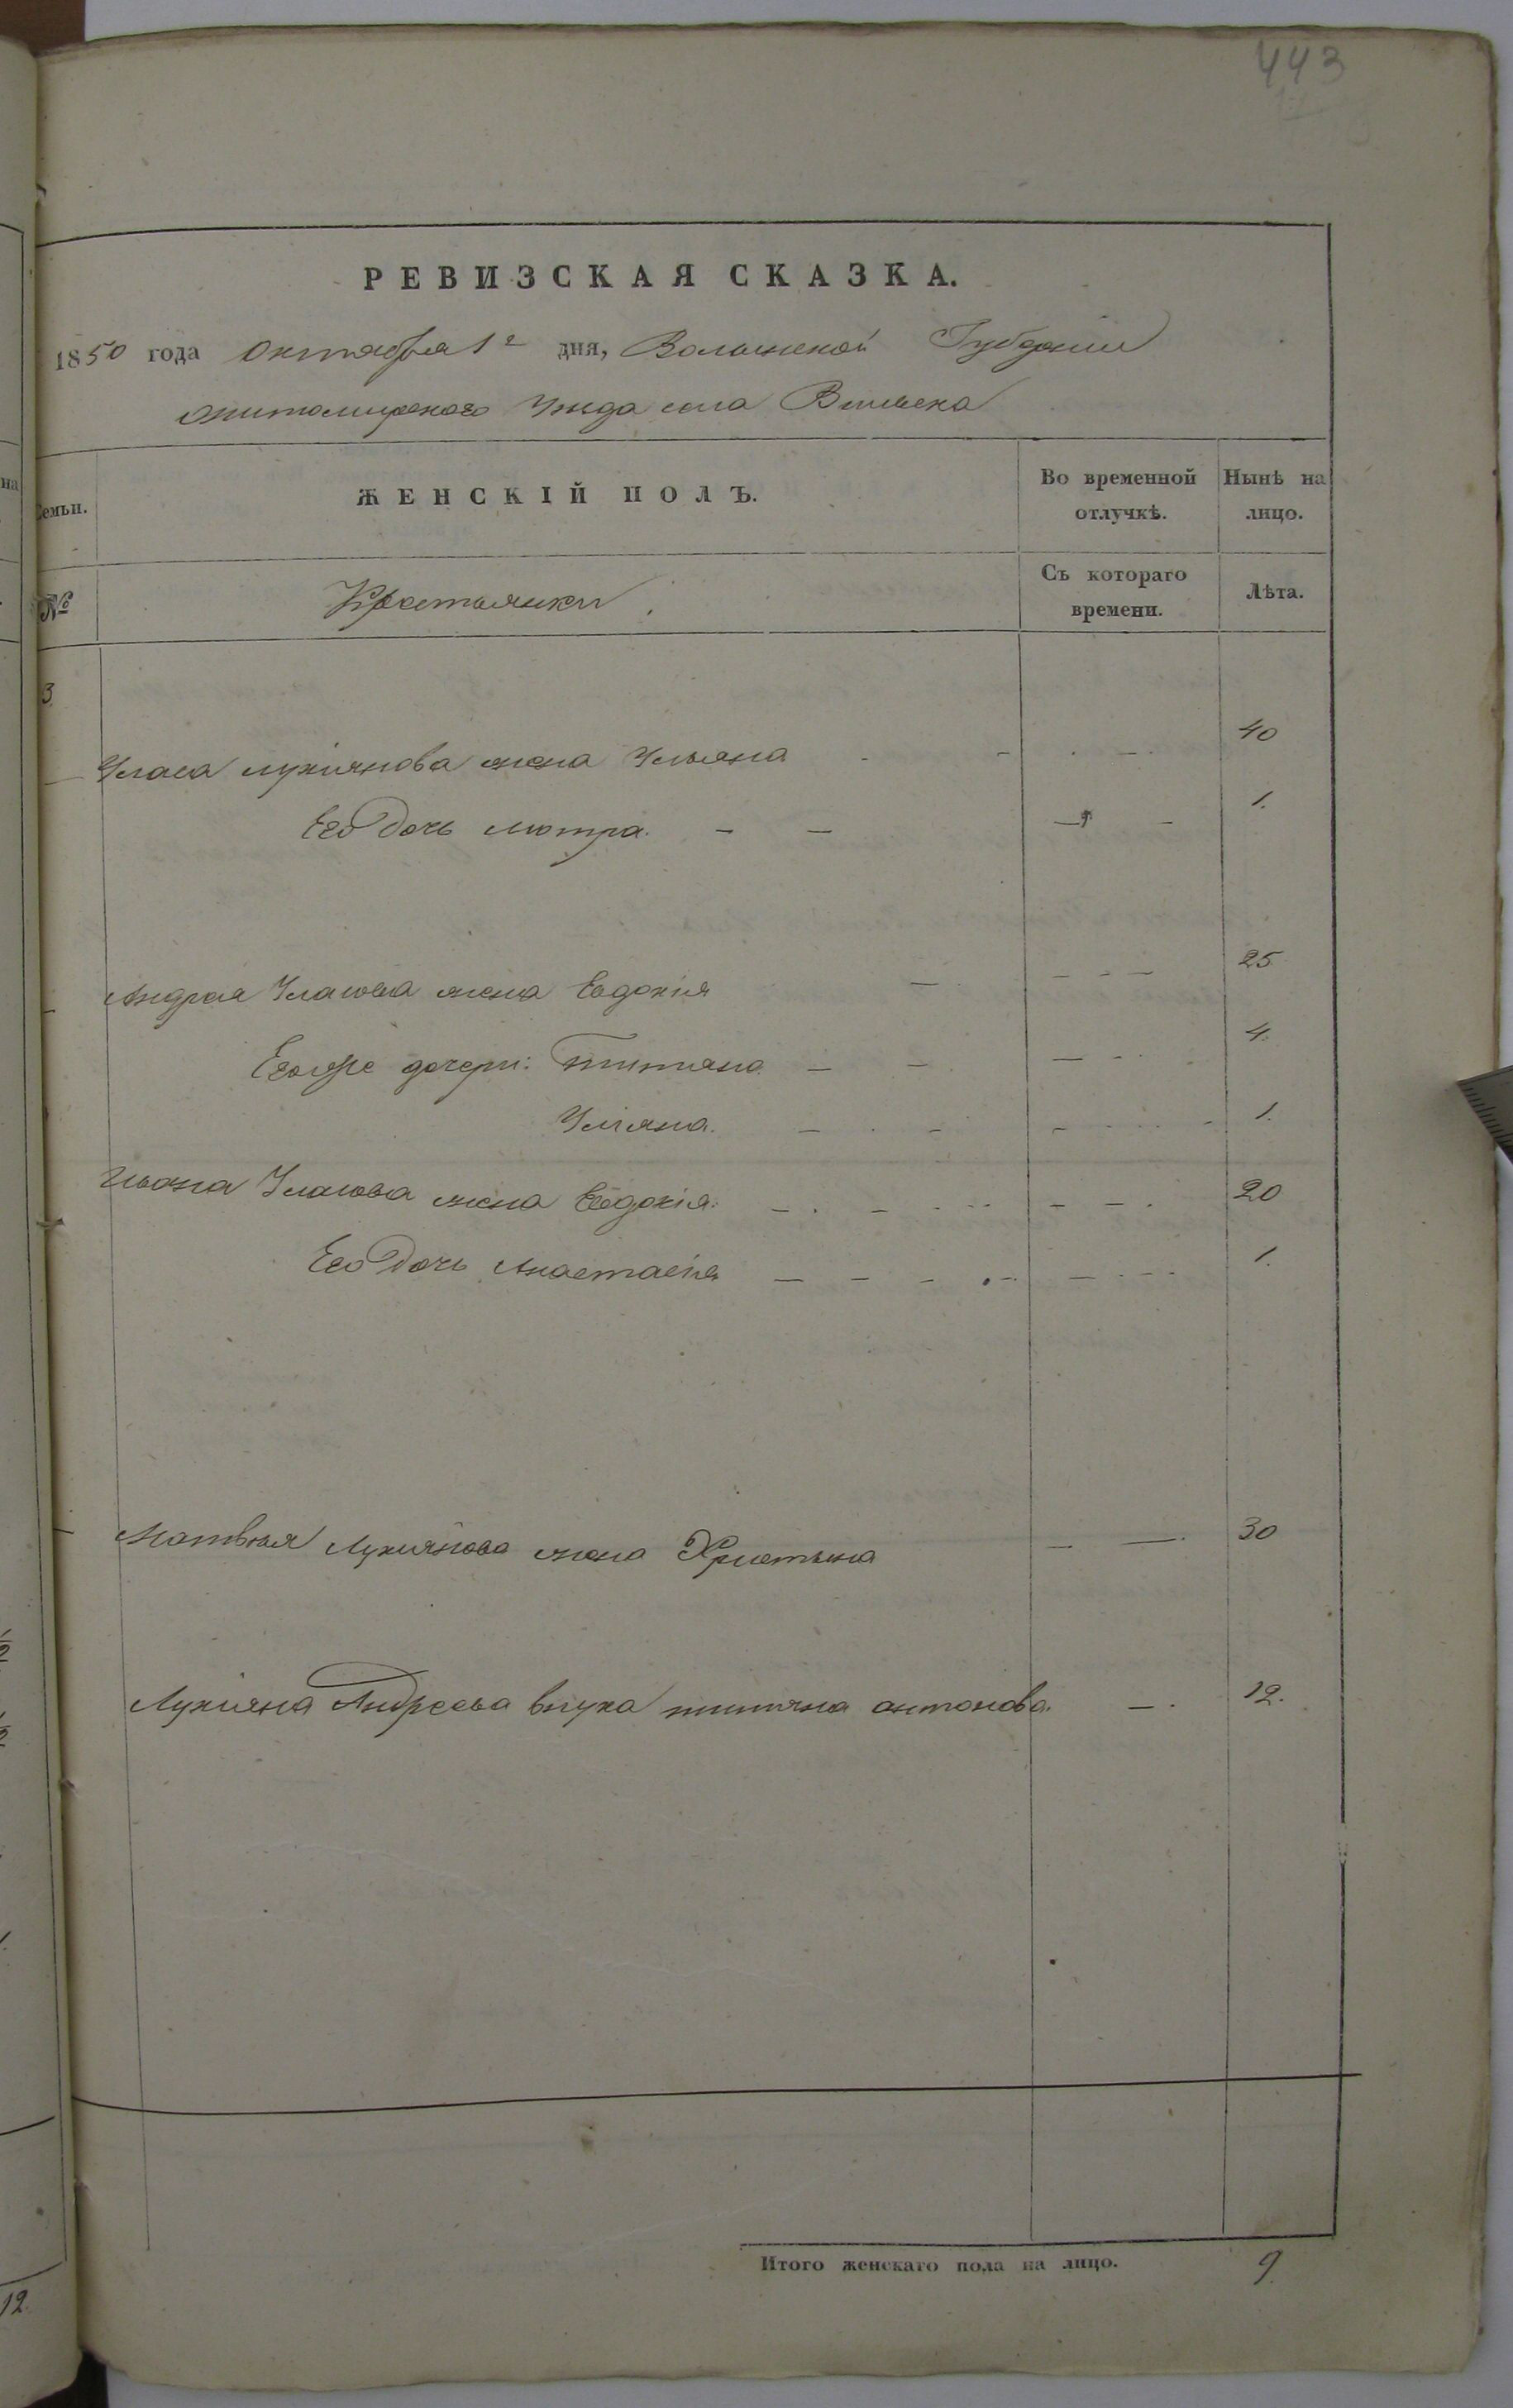 443
РЕВИЗСКАЯ СКАЗКА.
1850 года Октября 1го дня, Волынской Губернии
Житомирского Уезда села Вильска
Семьи.
ЖЕНСКІЙ ПОЛЪ.
Во временной отлучкѣ.
Нынѣ на лицо.
№
Крестьянки.
Съ котораго времени.
Лѣта.
3
Уласа Лукіянова жена Ульяна 40
Его дочь Мотра. 1.
Андрея Уласова жена Евдокія 25
Его же дочери: Титяна 4.
Уліяна. 1.
Ивана Уласова жена Евдокія. 20
Его дочь Анастасія 1.
Матвѣя Лукиянова жена Христына 30
Лукіяна Андреева внука титяна антонова. 12.
Итого женскаго пола на лицо. 9.
12.